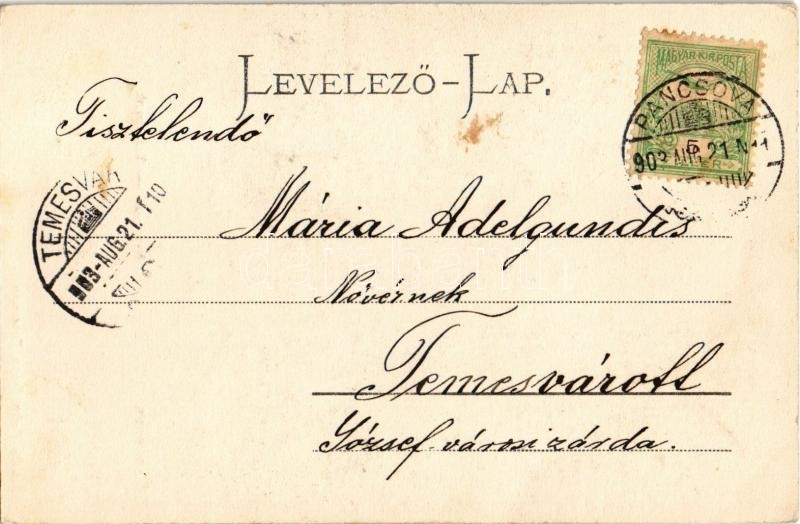 LEVELEZŐ-LAP.
MAGYAR KIR. POSTA
PANCSOVA
903 AUG. 21
Tisztelendő
TEMESVÁR
AUG. 21.
Mária Adelgundis
Nővérnek
Temesvárott
József városi zárda.